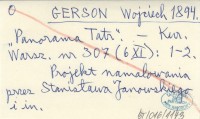 GERSON Wojciech 1894.
"Panorama Tatr". — Kur.
Warsz. nr 307 (6 XI): 1-2.
Projekt namalowania
przez Stanisława Janowskiego
i in.